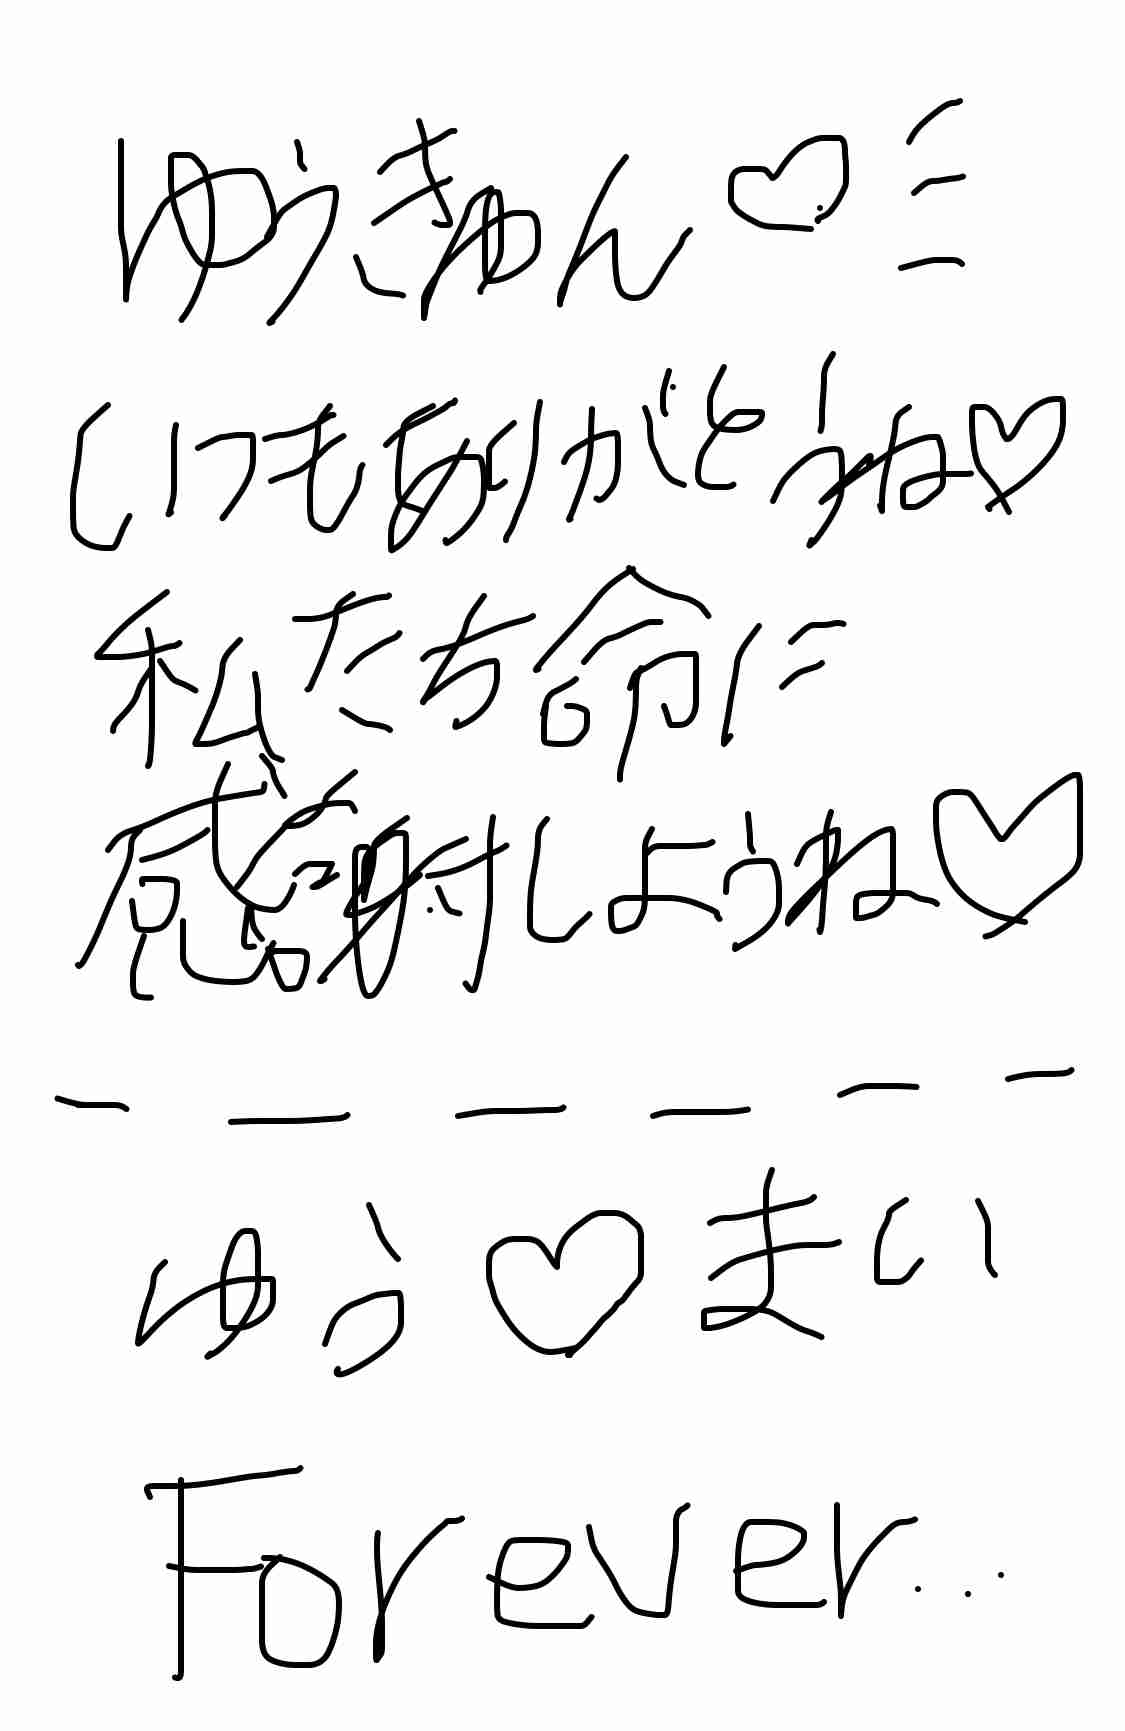 ゆうきゅん♡ミ
いつもありがとうね♡
私たち命に
感謝しようね♡
ゆう♡まい
Forever...